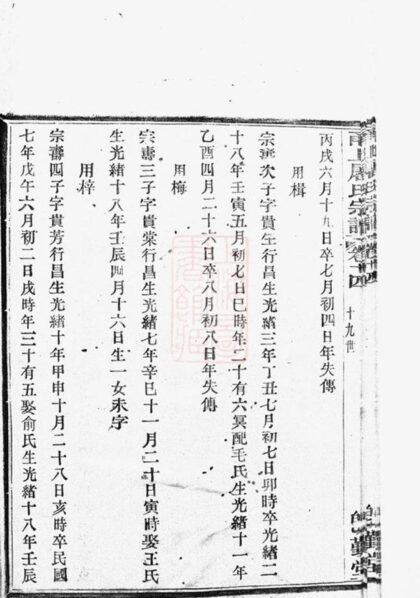 十九世
丙戌六月十九日卒七月初四日年失傳
用楫
宗壽次子字貴生行昌生光緒三年丁丑七月初七日卯時卒光緒二
十八年壬寅五月初七日巳時年二十有六冥配毛氏生光緒十一年
乙酉四月二十六日卒八月初八日年失傳
用梅
宗壽三子字貴棠行昌生光緒七年辛巳十一月二十日寅時娶王氏
生光緒十八年壬辰四月十六日生一女未字
用梓
宗壽四子字貴芳行昌生光緒十年甲申十月二十八日亥時卒民國
七年戊午六月初二日戌時年三十有五娶俞氏生光緒十八年壬辰